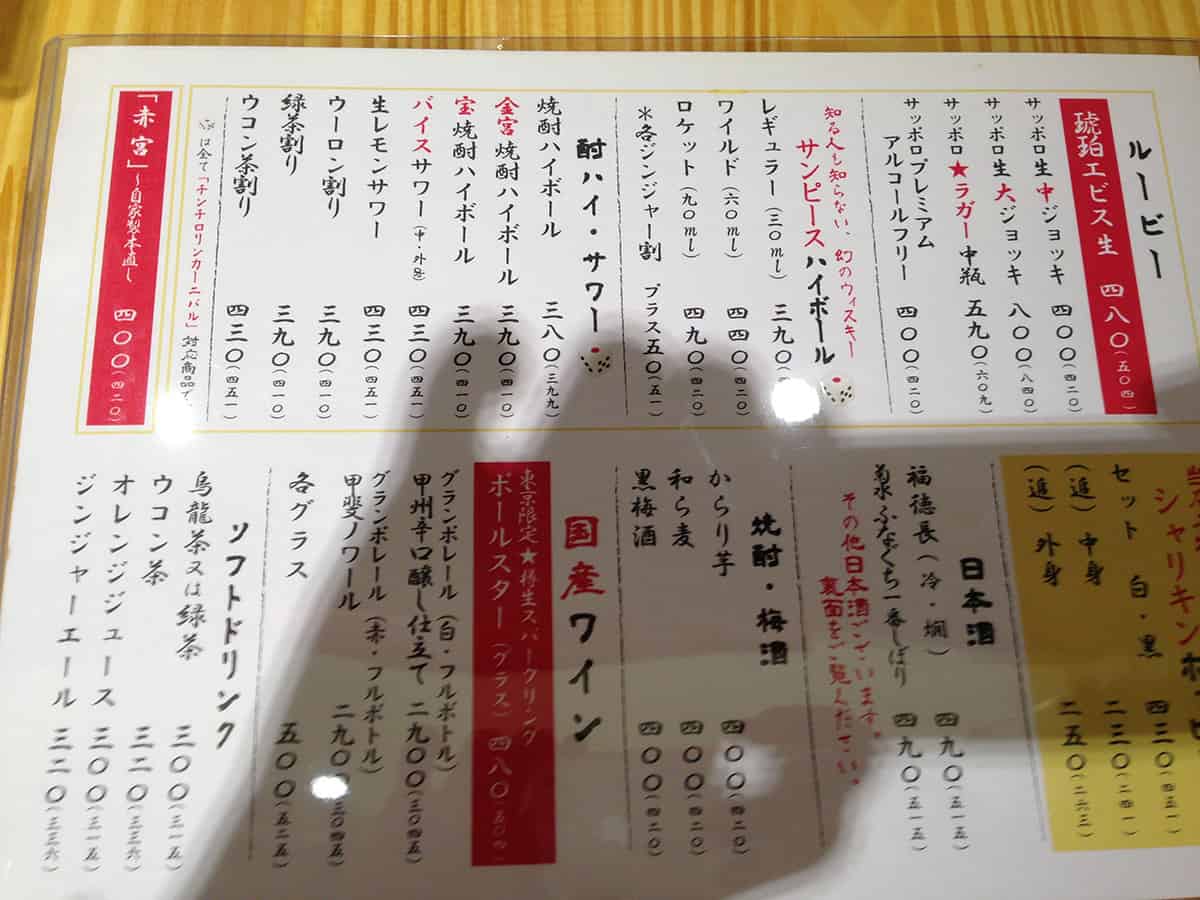 ルービー
琥珀エビス生 四八〇(五〇四)
サッポロ生中ジョッキ 四〇〇(四二〇)
サッポロ生大ジョッキ 八〇〇(八四〇)
サッポロ★ラガー中瓶 五九〇(六〇九)
サッポロプレミアム
アルコールフリー 四〇〇(四二〇)
知る人も知らない、幻のウィスキー
サンピースハイボール
レギュラー(三〇ml) 三九〇
ワイルド(六〇ml) 四四〇(四二〇)
ロケット(九〇ml) 四九〇(四二〇)
*各ジンジャー割 プラス五〇(五一)
酎ハイ・サワー
焼酎ハイボール 三八〇(三九九)
金宮焼酎ハイボール 三九〇(四一〇)
宝焼酎ハイボール 三九〇(四一〇)
バイスサワー(中・外め) 四三〇(四五一)
生レモンサワー 四三〇(四五一)
ウーロン割り 三九〇(四一〇)
緑茶割り 三九〇(四一〇)
ウコン茶割り 四三〇(四五一)
は全て「チンチロリンカーニバル」対応商品で
「赤宮」~自家製本直し 四〇〇(四二〇)
シャリキン
セット 白・黒 四三〇(四五一)
(追)中身 二三〇(二四一)
(追)外身 二五〇(二六三)
日本酒
福徳長(冷・燗) 四九〇(五一五)
菊水ふなぐち一番しぼり 四九〇(五一五)
その他日本酒ございます。
裏面をご覧ください。
焼酎・梅酒
からり芋 四〇〇(四二〇)
和ら麦 四〇〇(四二〇)
黒梅酒 四〇〇(四二〇)
国産ワイン
東京限定★樽生スパークリング
ポールスター(グラス) 四八〇(五〇四)
グランポレール(白・フルボトル)
甲州辛口醸し仕立て 二九〇〇(三〇四五)
グランポレール(赤・フルボトル)
甲斐ノワール 二九〇〇(三〇四五)
各グラス 五〇〇(五二五)
ソフトドリンク
烏龍茶又は緑茶 三〇〇(三一五)
ウコン茶 三二〇(三三六)
オレンジジュース 三〇〇(三一五)
ジンジャーエール 三二〇(三三六)